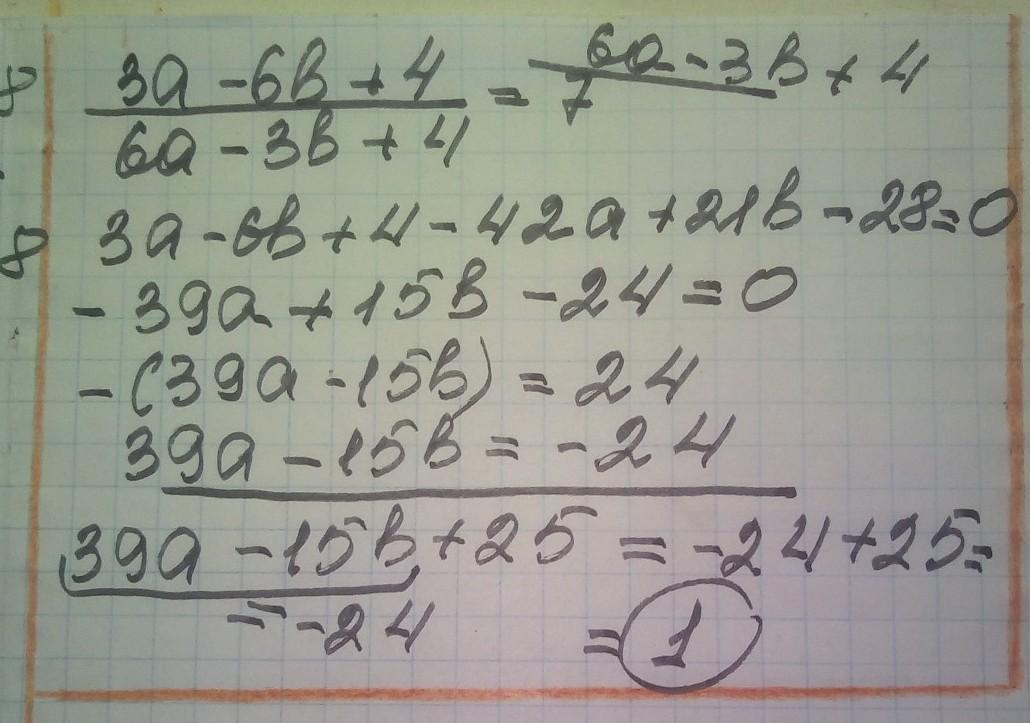 3a - 6b + 4 = 6a - 3b + 4
6a - 3b + 4 7
3a - 6b + 4 - 42a + 21b - 28 = 0
- 39a + 15b - 24 = 0
- (39a - 15b) = 24
39a - 15b = - 24
39a - 15b + 25 = - 24 + 25 =
= - 24 = 1